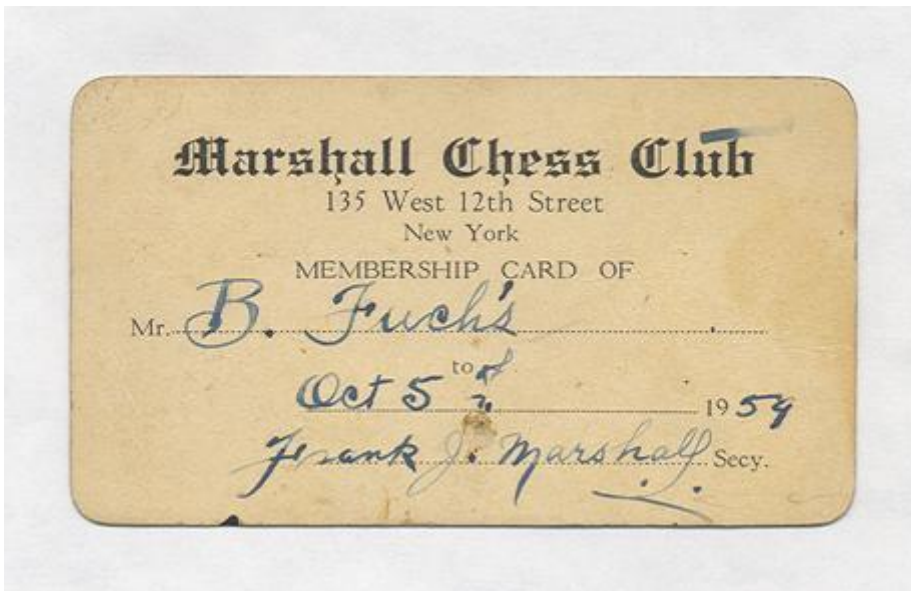 Marshall Chess Club
135 West 12th Street
New York
MEMBERSHIP CARD OF
Mr. B. Fuch's
to
Oct 5 1959
Frank J. Marshall Secy.